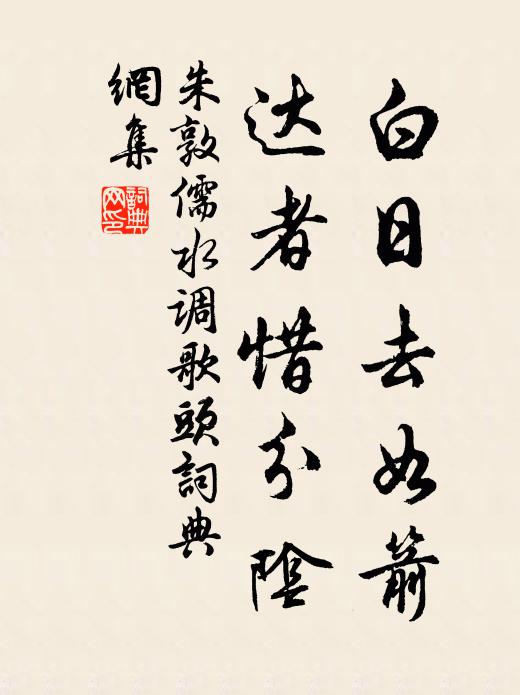 白日去如箭
达者惜分陰
朱敦儒水调歌頭詞典
網集
詞典
网印